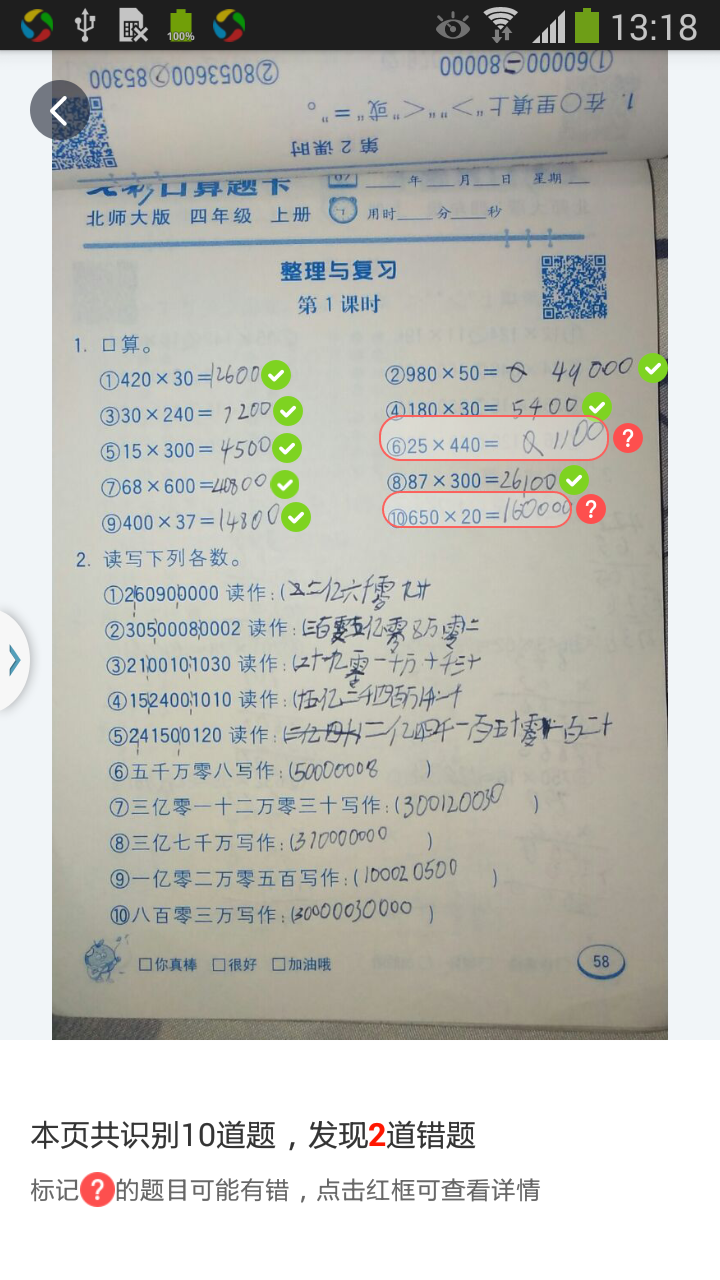 100%
13:18
①60000=80000
②8053600 85300
1. 在○里填上">""<"或"="。
第 2 课时
口算题卡
年 月 日 星期
北师大版 四年级 上册
用时 分 秒
整理与复习
第 1 课时
1. 口算。
①420×30=12600
②980×50= 49000
③30×240= 7200
④180×30= 5400
⑤15×300= 4500
⑥25×440= 1100
⑦68×600=40800
⑧87×300=26100
⑨400×37=14800
⑩650×20=160000
2. 读写下列各数。
①260900000 读作:(二亿六千零九十
②30500080002 读作:(三百零五亿零8万零二
③2100101030 读作:(二十九零一十万十千三十
④1524001010 读作:(十五亿二千四百万
⑤241500120 读作:(二亿四千一百五十零一百二十
⑥五千万零八写作:(50000008 )
⑦三亿零一十二万零三十写作:(300120030 )
⑧三亿七千万写作:(370000000 )
⑨一亿零二万零五百写作:(100020500 )
⑩八百零三万写作:(30000030000 )
你真棒 很好 加油哦
58
本页共识别10道题，发现2道错题
标记?的题目可能有错，点击红框可查看详情